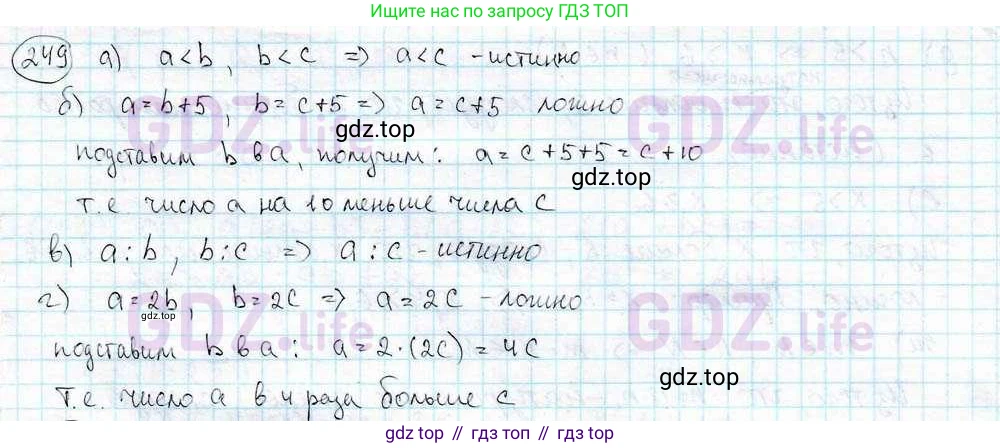 Ищите нас по запросу ГДЗ ТОП
249 а) a<b, b<c => a<c - истинно
б) a=b+5, b=c+5 => a=c+5 ложно
GDZ.life GDZ.life
gdz.top
подставим b в a, получим: a=c+5+5=c+10
gdz.top
т.е. число a на 10 меньше числа c
в) a:b, b:c => a:c - истинно
г) a=2b, b=2c => a=2c - ложно
GDZ.life GDZ.life
gdz.top
подставим b в a: a=2·(2c)=4c
gdz.top
т.е. число a в 4 раза больше c
gdz топ // гдз топ // gdz.top